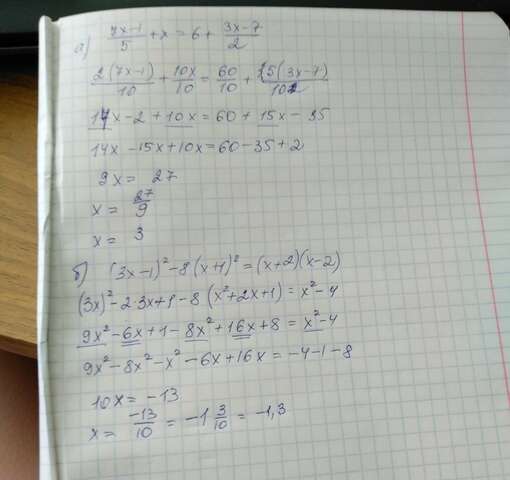 а) 7x-1/5 + x = 6 + 3x-7/2
2(7x-1)/10 + 10x/10 = 60/10 + 5(3x-7)/10
14x - 2 + 10x = 60 + 15x - 35
14x - 15x + 10x = 60 - 35 + 2
9x = 27
x = 27/9
x = 3
б) (3x-1)² - 8(x+1)² = (x+2)(x-2)
(3x)² - 2·3x + 1 - 8(x² + 2x + 1) = x² - 4
9x² - 6x + 1 - 8x² + 16x + 8 = x² - 4
9x² - 8x² - x² - 6x + 16x = -4 - 1 - 8
10x = -13
x = -13/10 = -1 3/10 = -1,3